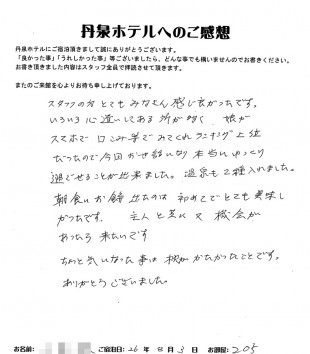 丹泉ホテルへのご感想
丹泉ホテルにご宿泊頂きまして誠にありがとうございます。
「良かった事」「うれしかった事」等ございましたら、どんな事でも構いませんのでお書きください。
お書き頂きました内容はスタッフ全員で拝読させて頂きます。
またのご来館を心よりお待ち申し上げております。
スタッフの方とてもみなさん感じ良かったです。
いろいろ心遣いしてある所が多く、娘が
スマホで口こみ等でみてくれランキング上位
だったので今回おせ話になり本当にゆっくり
過ごせることが出来ました。温泉も2種入れました。
朝食にお鍋 出たのは 初めてでとても美味し
かったです。 主人と共に又 機会が
あったら 来たいです
ちょっと気になった事は 枕がかたかったことです。
ありがとうございました。
お名前: ご宿泊日: 26 年 8 月 3 日 お部屋: 205